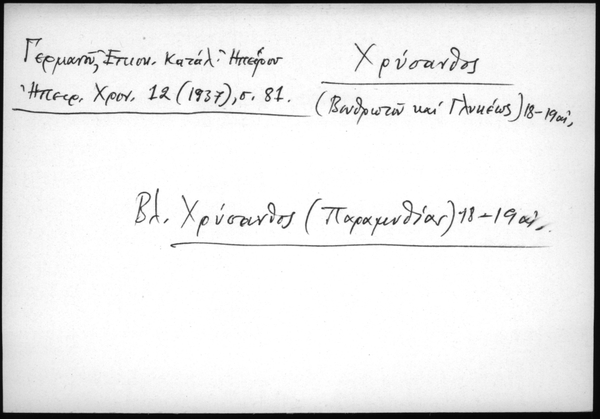 Γερμανοῦ, Ἐπισκ. κατάλ. Ἠπείρου
Ἠπειρ. Χρον. 12 (1937), σ. 81.
Χρύσανθος
(Βουθρωτοῦ καὶ Γλυκέως) 18-19 αἰ.
Βλ. Χρύσανθος (Παραμυθίας) 18-19 αἰ.